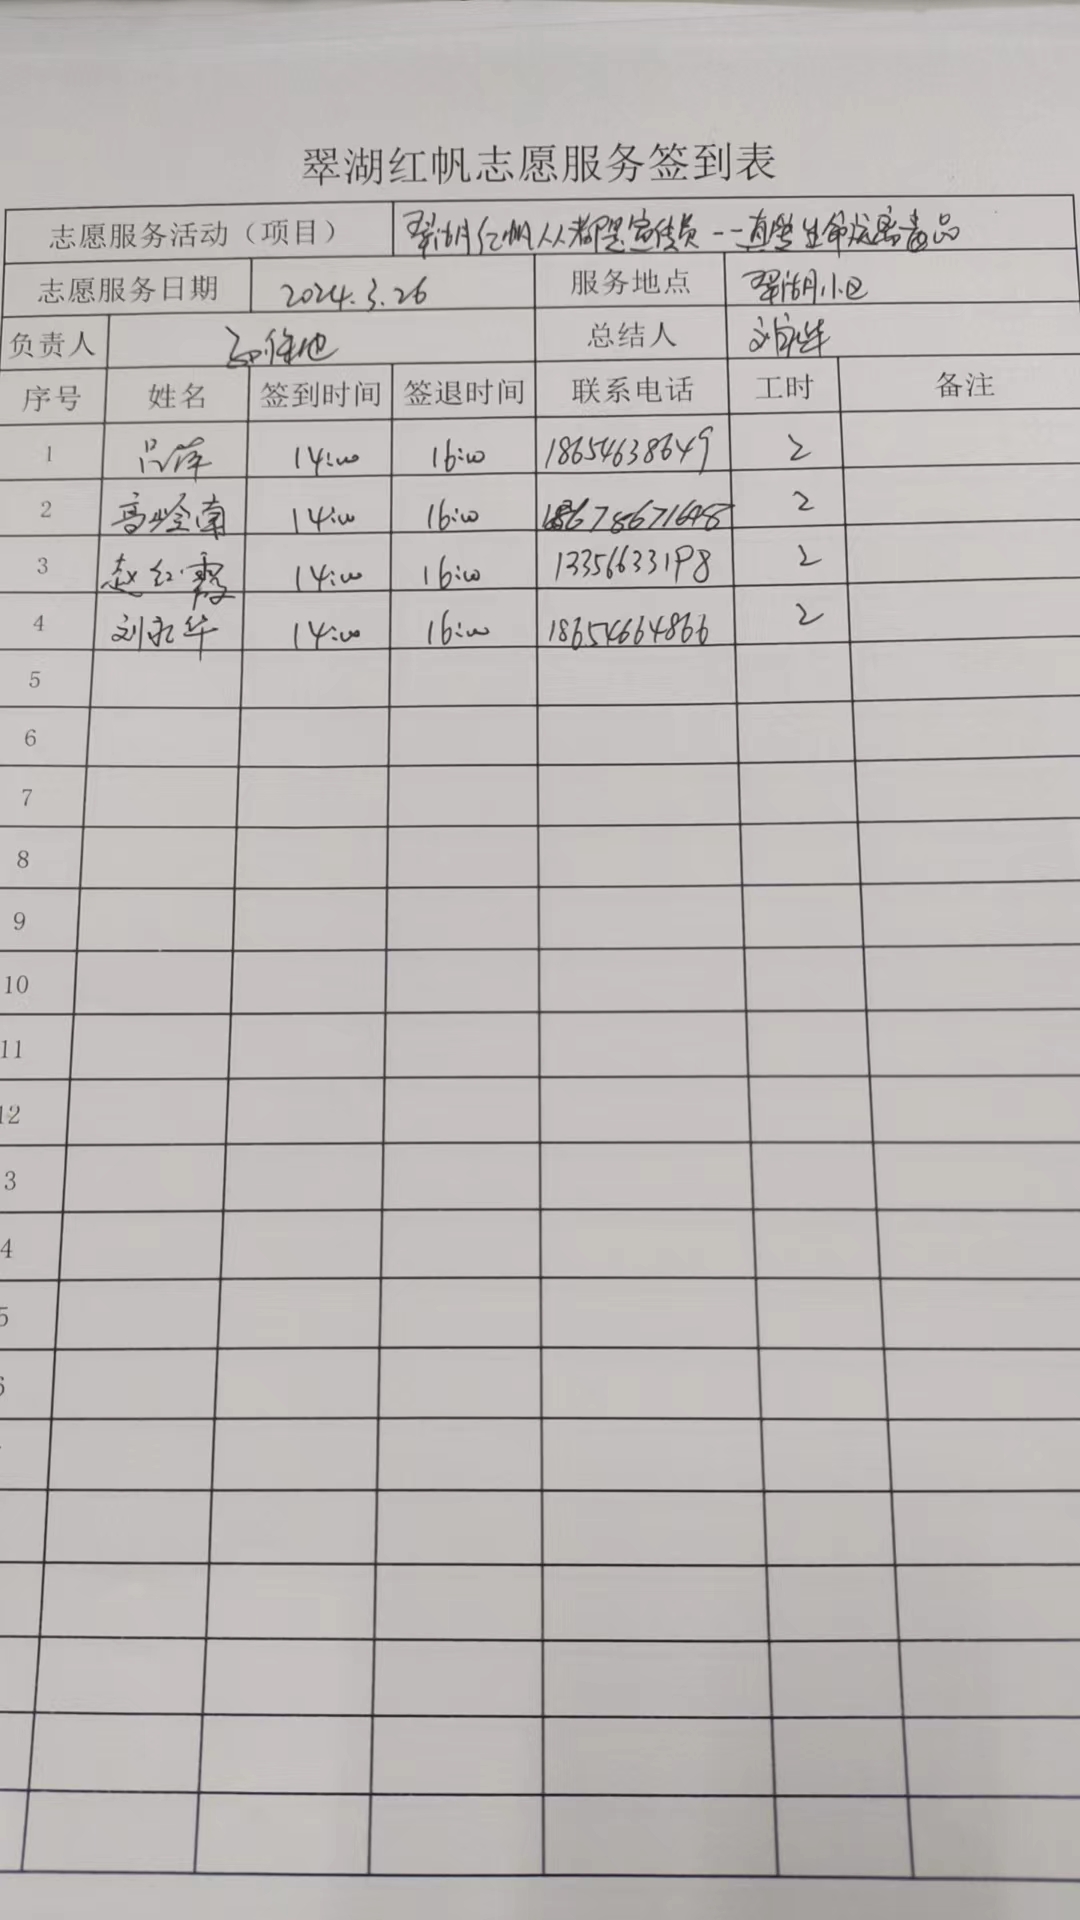 翠湖红帆志愿服务签到表
志愿服务活动（项目） 翠湖红帆人人都是宣传员--真爱生命远离毒品
志愿服务日期 2024.3.26 服务地点 翠湖小区
负责人 总结人 刘永华
序号 姓名 签到时间 签退时间 联系电话 工时 备注
1 吕萍 14:00 16:00 18654638649 2
2 高岭南 14:00 16:00 18678671648 2
3 赵红霞 14:00 16:00 13356633198 2
4 刘永华 14:00 16:00 18654664866 2
5
6
7
8
9
10
11
12
3
4
5
6